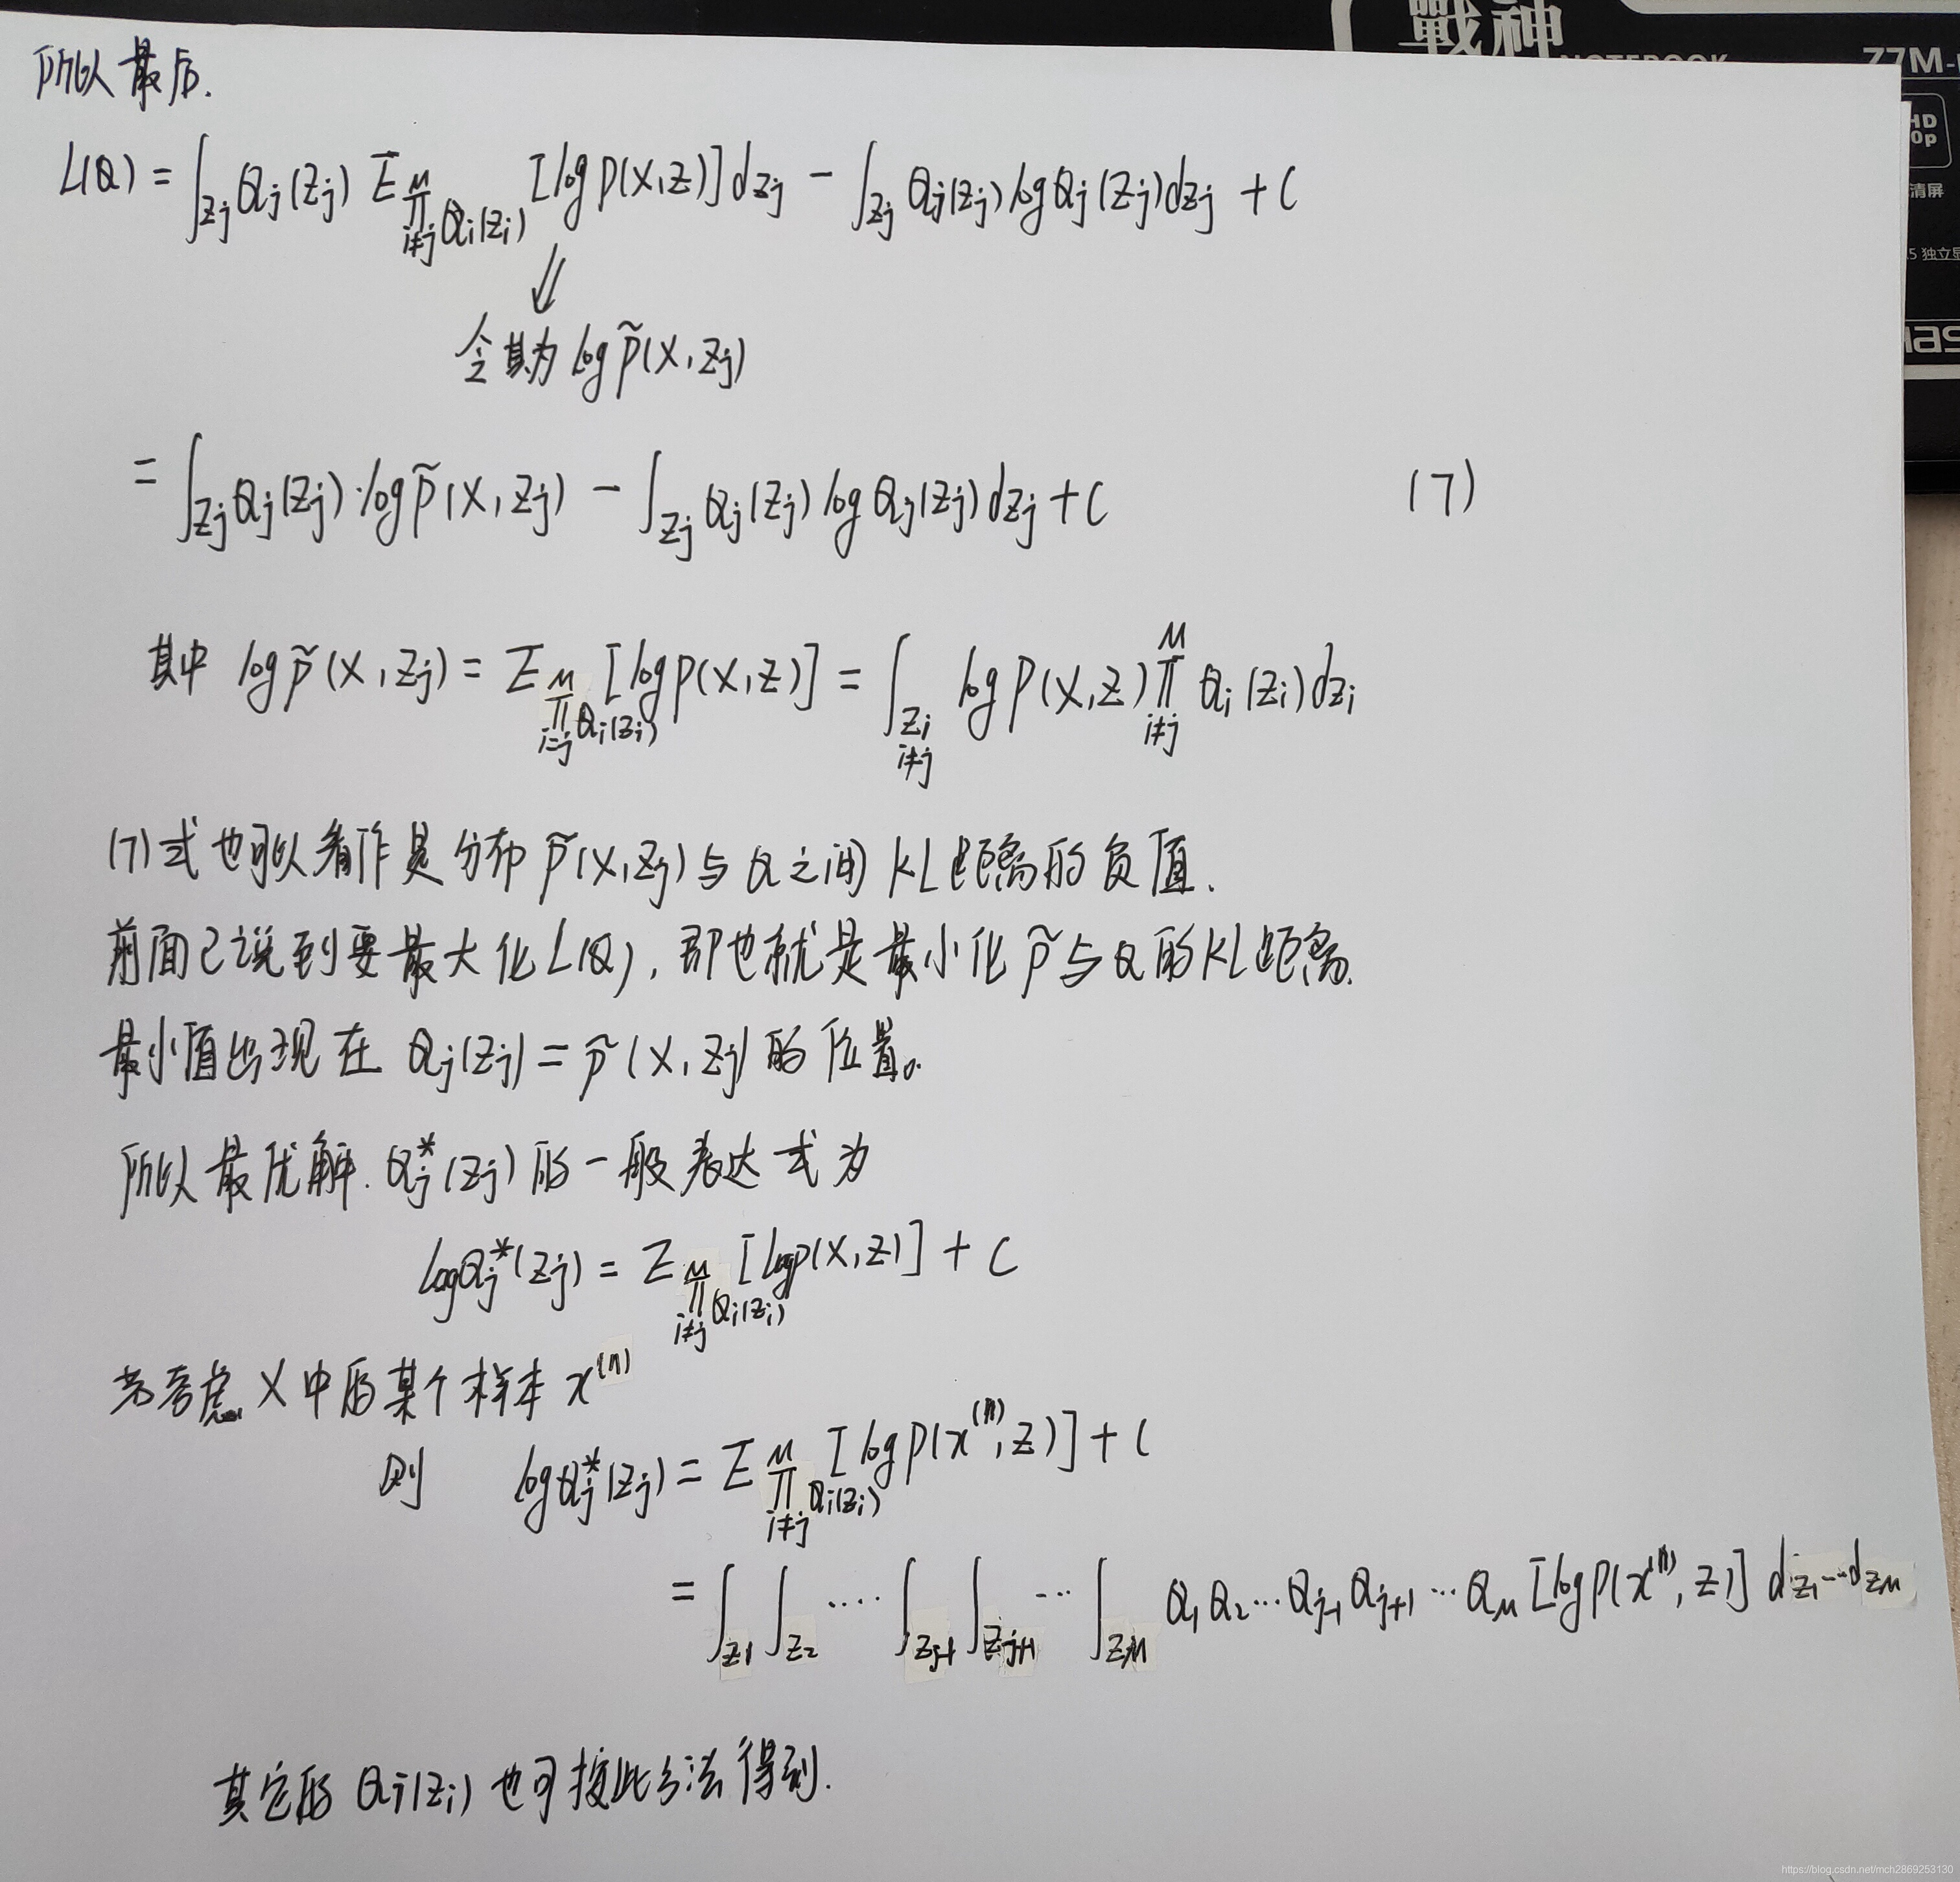 戰神
NOTEBOOK
Z7M-
HD
0p
清屏
独立显
所以最后.
L(Q) = ∫_{Zj} Qj(Zj) E_{∏_{i≠j}^{M} Qi(Zi)} [log p(X,Z)] dZj − ∫_{Zj} Qj(Zj) log Qj(Zj) dZj + C
⇓
令其为 log p̃(X,Zj)
= ∫_{Zj} Qj(Zj)·log p̃(X,Zj) − ∫_{Zj} Qj(Zj) log Qj(Zj) dZj + C (7)
其中 log p̃(X,Zj) = E_{∏_{i=j}^{M} Qi(Zi)} [log p(X,Z)] = ∫_{Zi, i≠j} log p(X,Z) ∏_{i≠j}^{M} Qi(Zi) dZi
(7)式也可以看作是分布 p̃(X,Zj) 与 Q 之间 KL距离的负值.
前面已说到要最大化 L(Q), 即也就是最小化 p̃ 与 Q 的 KL距离.
最小值出现在 Qj(Zj) = p̃(X,Zj) 的位置。
所以最优解. Qj*(Zj) 的一般表达式为
log Qj*(Zj) = E_{∏_{i≠j}^{M} Qi(Zi)} [log p(X,Z)] + C
若考虑 X 中的某个样本 x^(n)
则 log Qj*(Zj) = E_{∏_{i≠j}^{M} Qi(Zi)} [log p(x^(n),Z)] + C
= ∫_{Z1} ∫_{Z2} ···· ∫_{Zj-1} ∫_{Zj+1} ··· ∫_{ZM} Q1 Q2 ··· Qj-1 Qj+1 ··· QM [log p(x^(n),Z)] dZ1 ··· dZM
其它的 Qi(Zi) 也可按此方法得到.
https://blog.csdn.net/mch2869253130